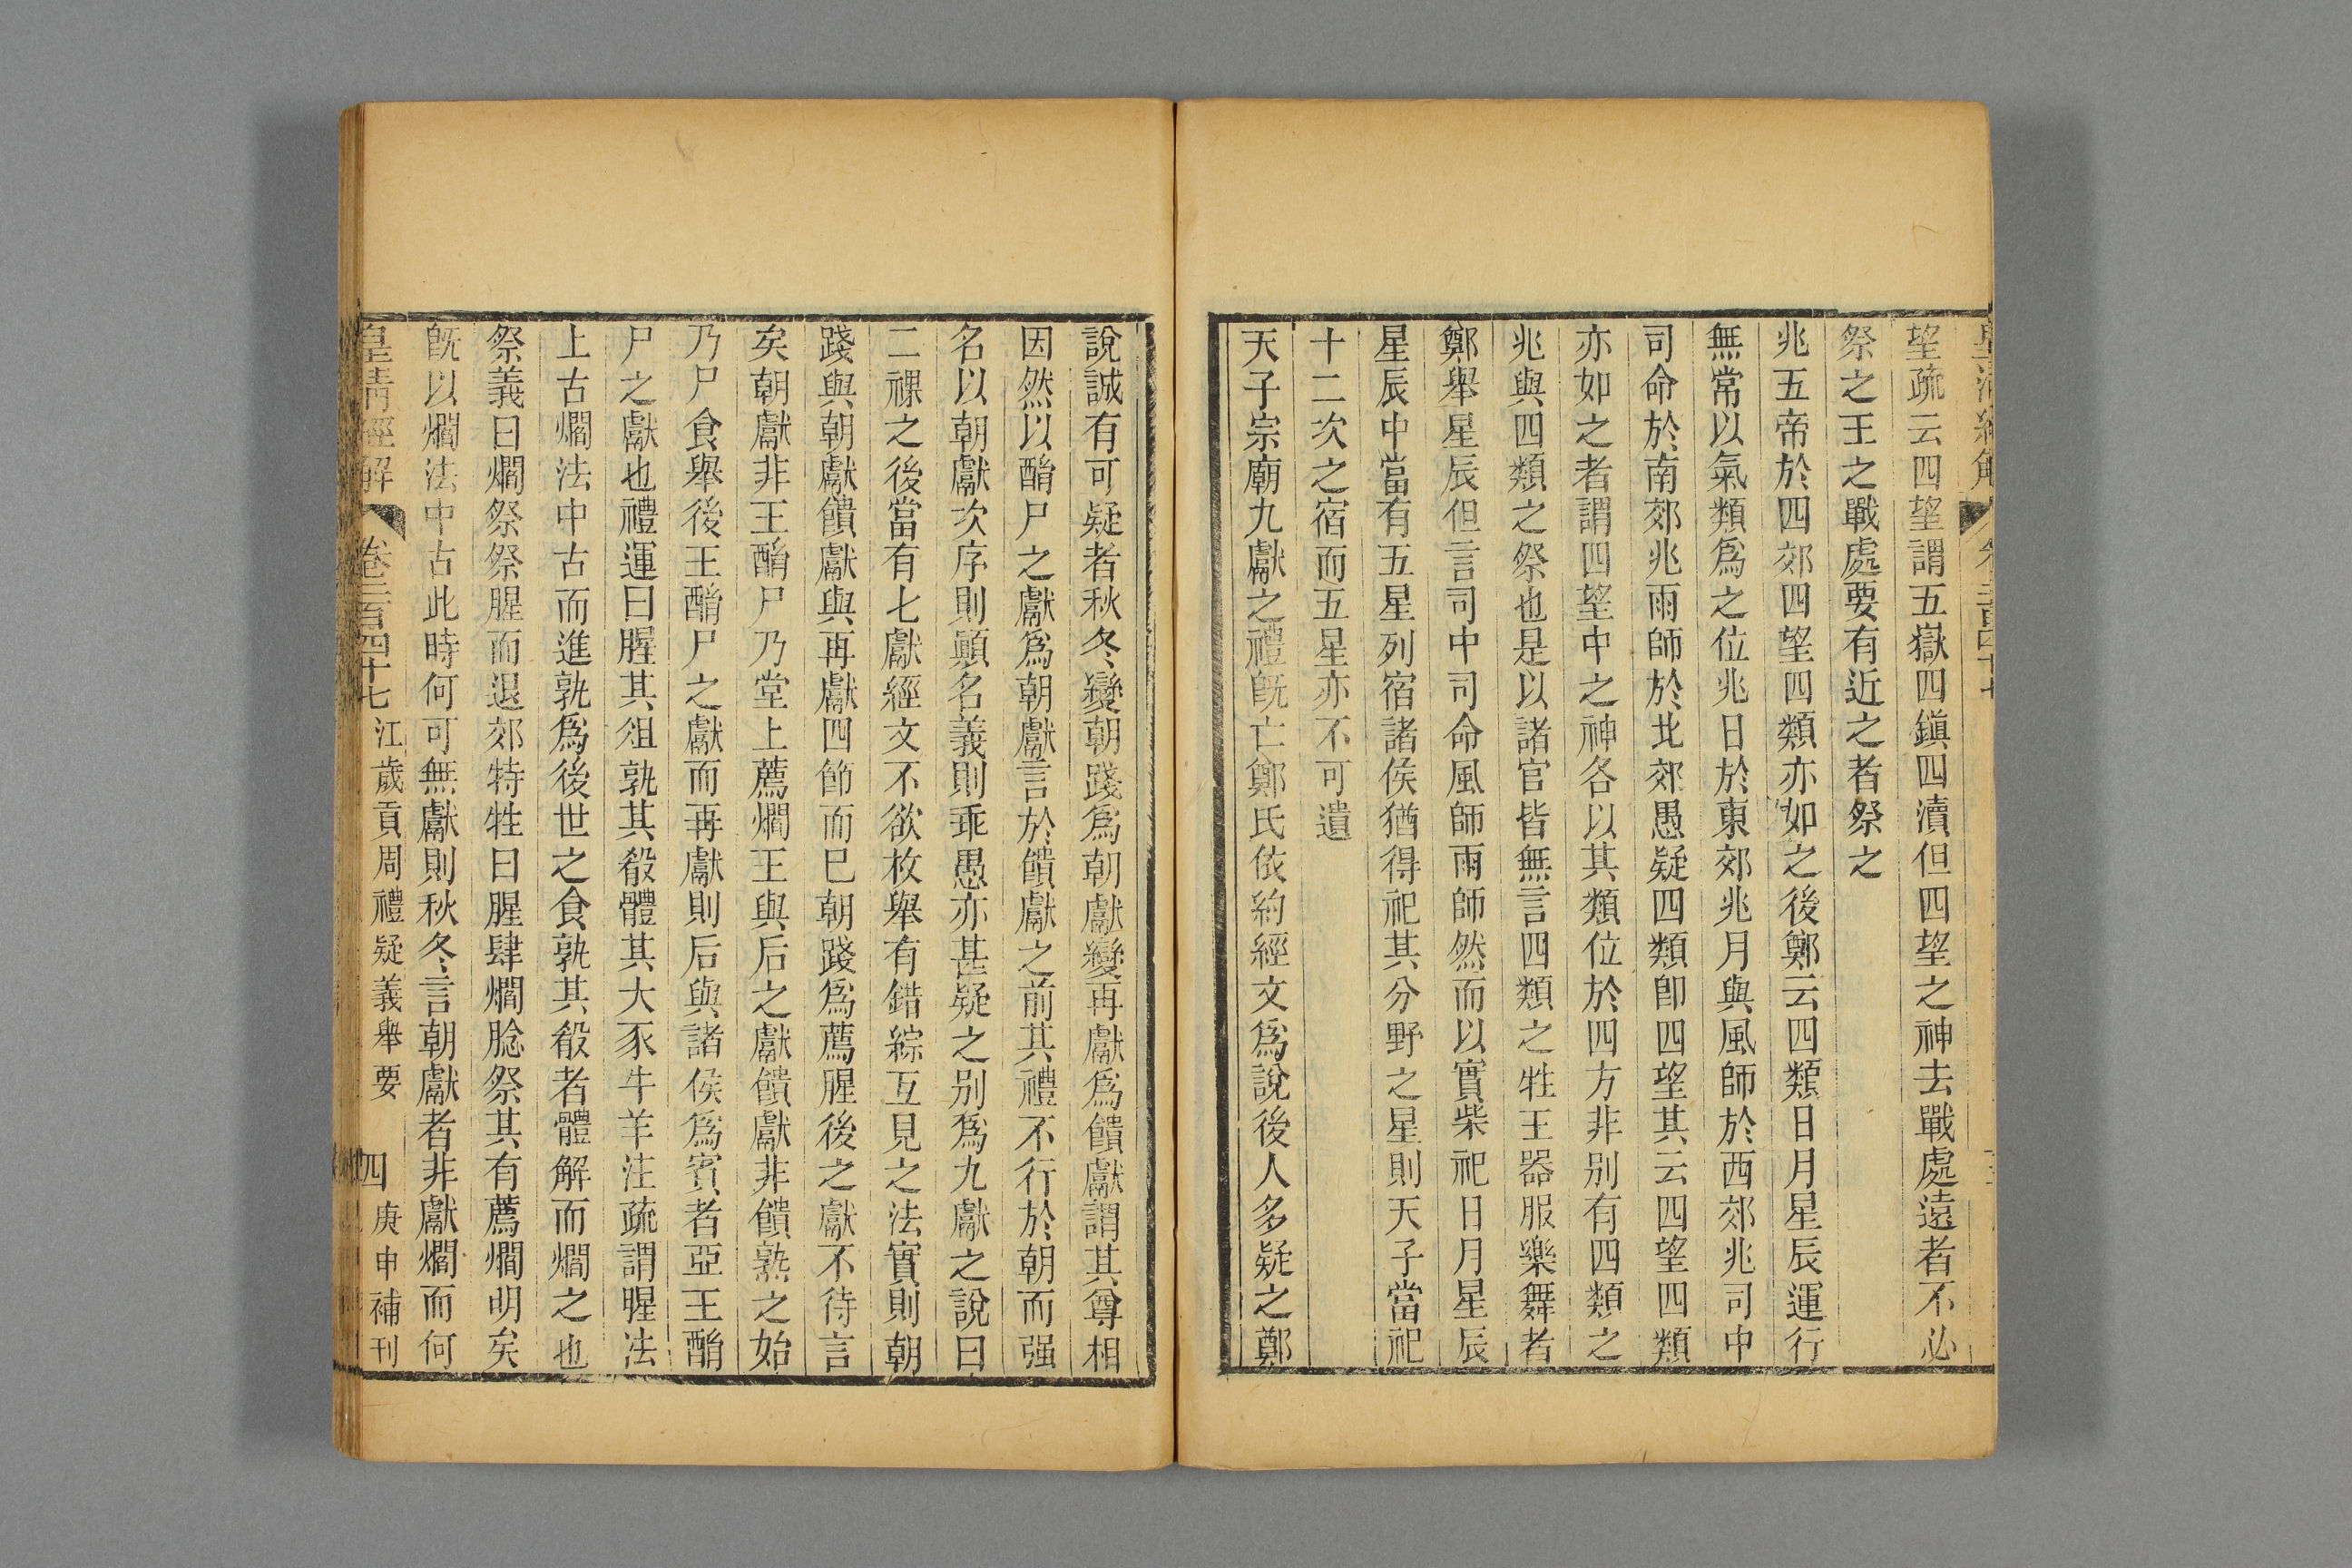 望疏云四望謂五嶽四鎮四瀆但四望之神去戰處遠者不必
祭之王之戰處要有近之者祭之
兆五帝於四郊四望四類亦如之後鄭云四類日月星辰運行
無常以氣類爲之位兆日於東郊兆月與風師於西郊兆司中
司命於南郊兆雨師於北郊愚疑四類卽四望其云四望四類
亦如之者謂四望中之神各以其類位於四方非别有四類之
兆與四類之祭也是以諸官皆無言四類之牲王器服樂舞者
鄭舉星辰但言司中司命風師雨師然而以實柴祀日月星辰
星辰中當有五星列宿諸侯猶得祀其分野之星則天子當祀
十二次之宿而五星亦不可遺
天子宗廟九獻之禮旣亡鄭氏依約經文爲說後人多疑之鄭
說誠有可疑者秋冬變朝踐爲朝獻變再獻爲饋獻謂其尊相
因然以酳尸之獻爲朝獻言於饋獻之前其禮不行於朝而强
名以朝獻次序則顚名義則乖愚亦甚疑之别爲九獻之說曰
二祼之後當有七獻經文不欲枚舉有錯綜互見之法實則朝
踐與朝獻饋獻與再獻四節而巳朝踐爲薦腥後之獻不待言
矣朝獻非王酳尸乃堂上薦爓王與后之獻饋獻非饋熟之始
乃尸食舉後王酳尸之獻而再獻則后與諸侯爲賓者亞王酳
尸之獻也禮運曰腥其俎孰其殽體其犬豕牛羊注疏謂腥法
上古爓法中古而進孰爲後世之食孰其殽者體解而爓之也
祭義曰爓祭祭腥而退郊特牲曰腥肆爓腍祭其有薦爓明矣
旣以爓法中古此時何可無獻則秋冬言朝獻者非獻爓而何
皇清經解 卷二百四十七 江歲貢周禮疑義舉要 四 庚申補刊